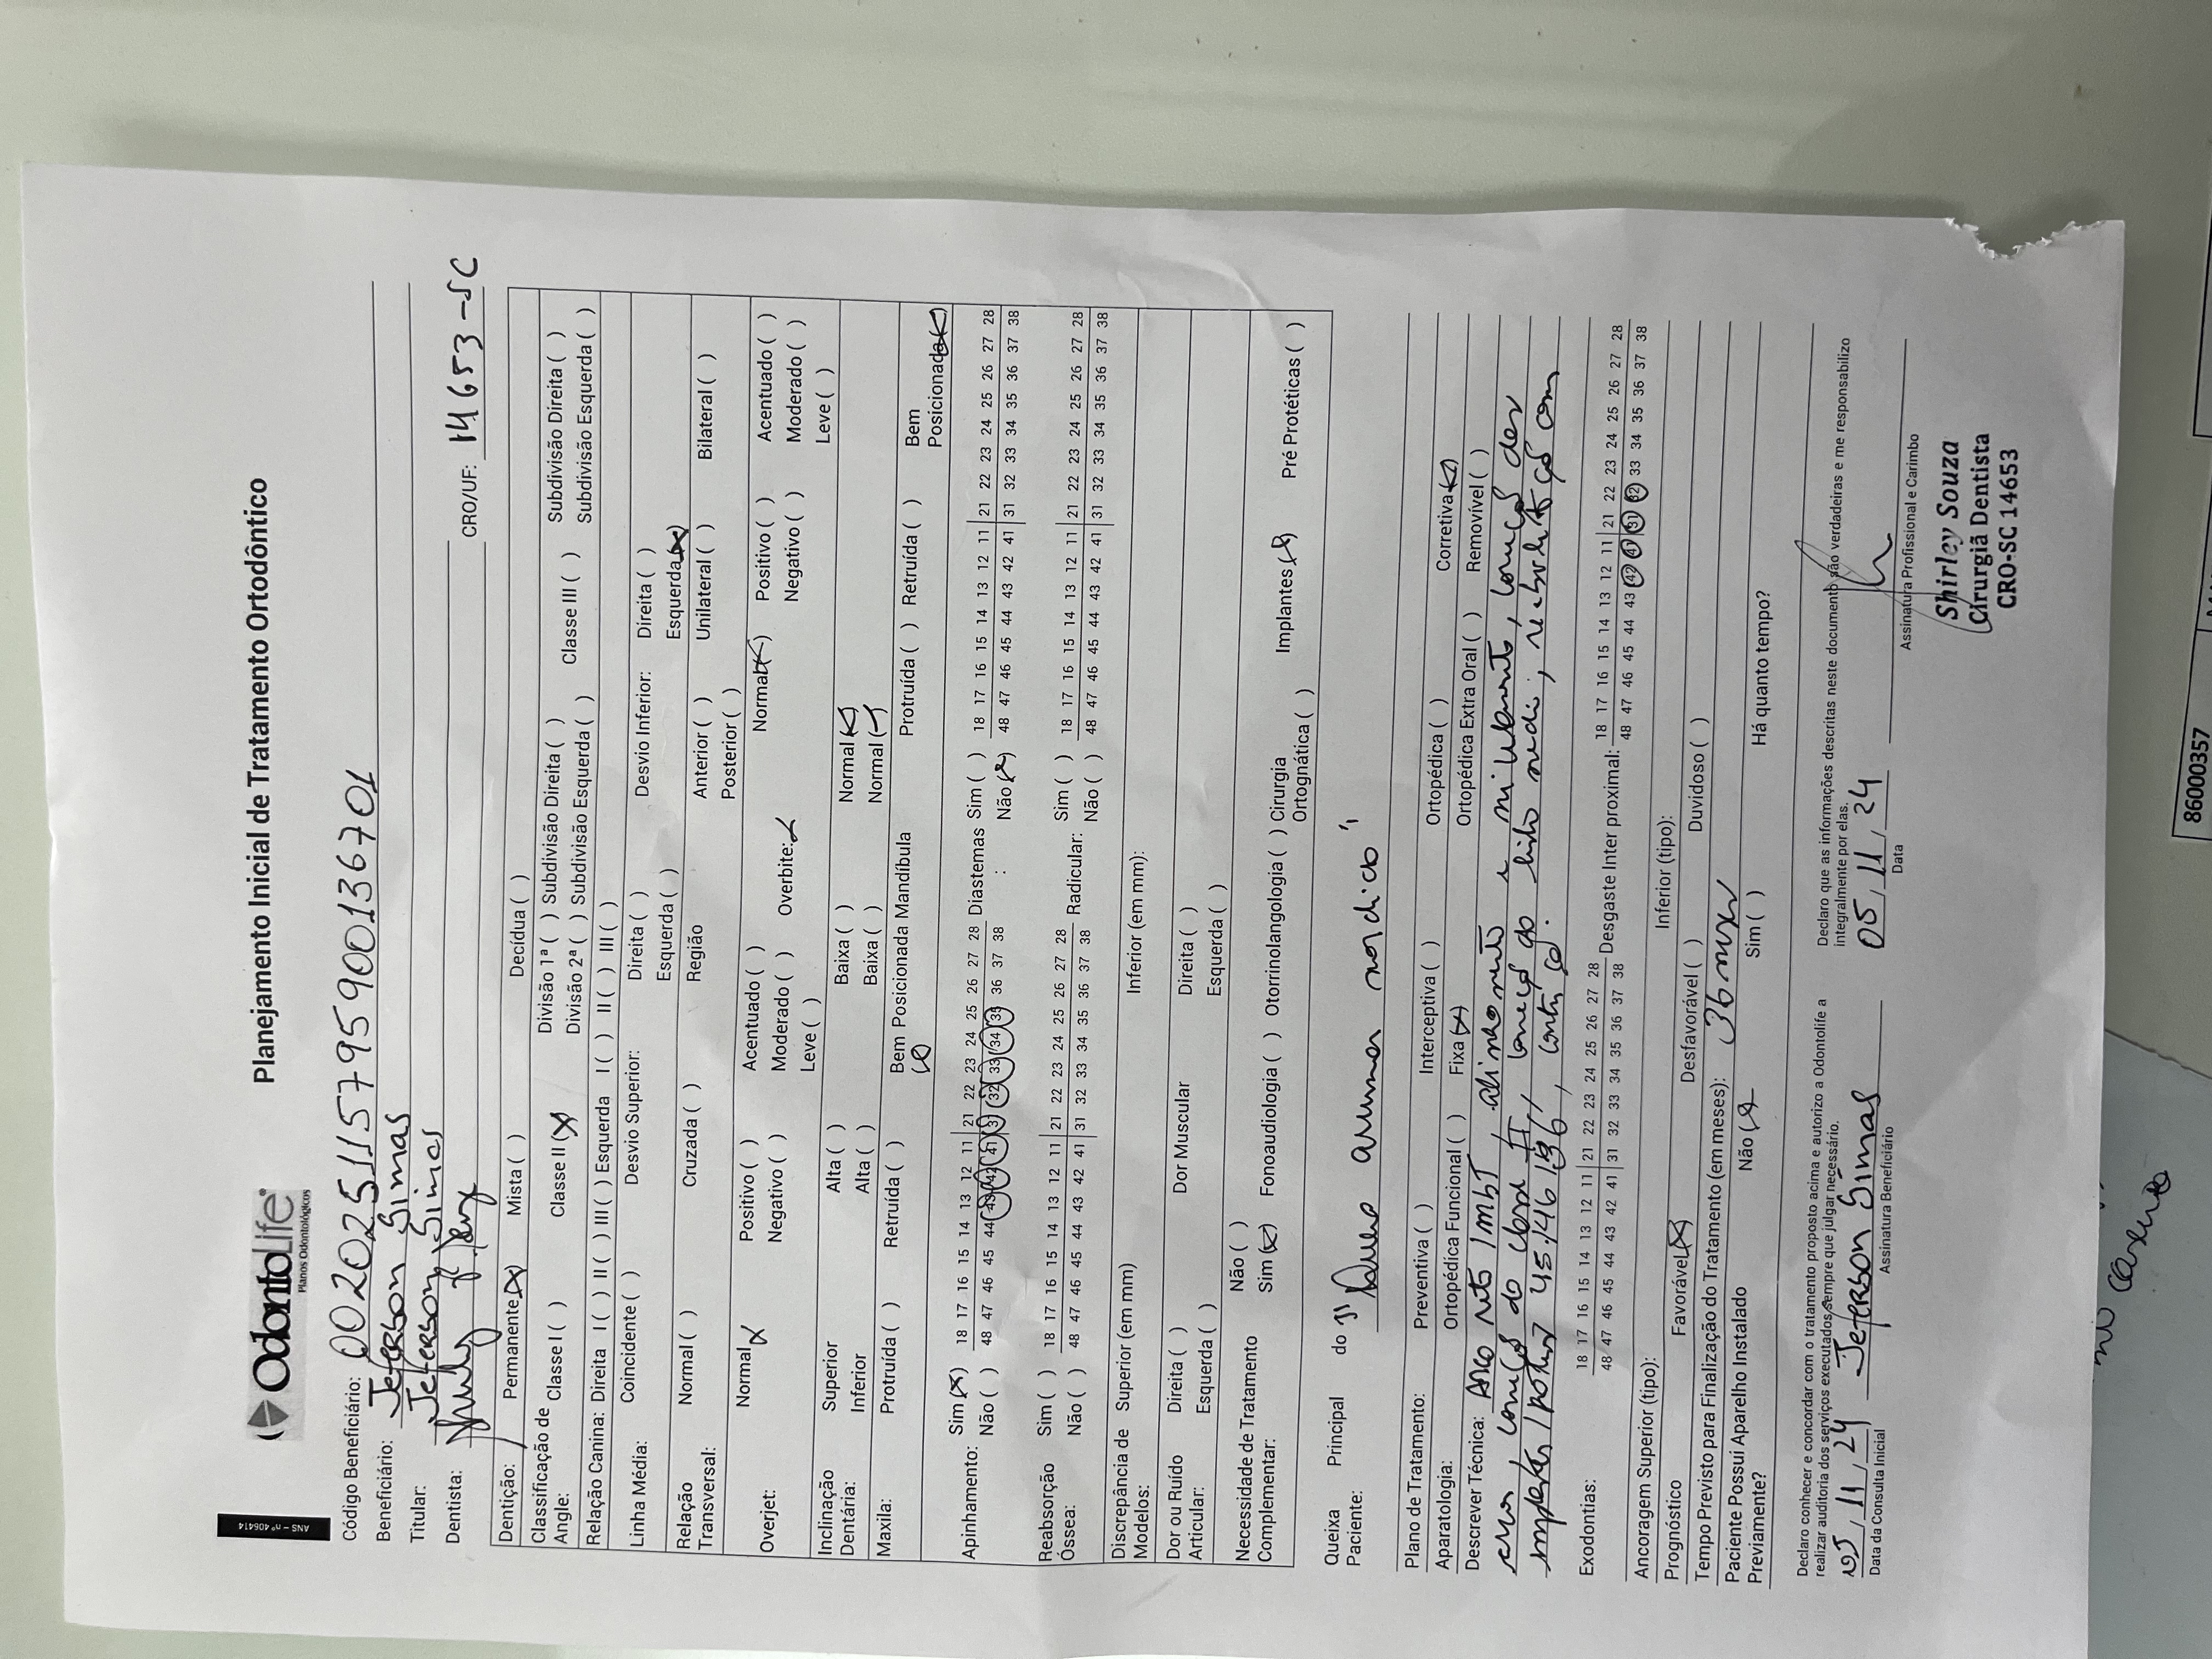 ANS - nº 406414
OdontoLife®
Planos Odontológicos
Planejamento Inicial de Tratamento Ortodôntico
Código Beneficiário: 002025115795900136701
Beneficiário: Jeferson Simas
Titular: Jeferson Simas
Dentista: CRO/UF: 14653-SC
Dentição: Permanente (X) Mista ( ) Decídua ( )
Classificação de Angle: Classe I ( ) Classe II (X) Divisão 1ª ( ) Subdivisão Direita ( ) Classe III ( ) Subdivisão Direita ( )
Divisão 2ª ( ) Subdivisão Esquerda ( ) Subdivisão Esquerda ( )
Relação Canina: Direita I ( ) II ( ) III ( ) Esquerda I ( ) II ( ) III ( )
Linha Média: Coincidente ( ) Desvio Superior: Direita ( ) Desvio Inferior: Direita ( )
Esquerda ( ) Esquerda (X)
Relação Transversal: Normal ( ) Cruzada ( ) Região Anterior ( ) Unilateral ( ) Bilateral ( )
Posterior ( )
Overjet: Normal (X) Positivo ( ) Acentuado ( ) Overbite: Normal (X) Positivo ( ) Acentuado ( )
Negativo ( ) Moderado ( ) Negativo ( ) Moderado ( )
Leve ( ) Leve ( )
Inclinação Dentária: Superior Alta ( ) Baixa ( ) Normal (X)
Inferior Alta ( ) Baixa ( ) Normal (X)
Maxila: Protruída ( ) Retruída ( ) Bem Posicionada (X) Mandíbula Protruída ( ) Retruída ( ) Bem Posicionada (X)
Apinhamento: Sim (X) 18 17 16 15 14 13 12 11 21 22 23 24 25 26 27 28 Diastemas Sim ( ) 18 17 16 15 14 13 12 11 21 22 23 24 25 26 27 28
Não ( ) 48 47 46 45 44 43 42 41 31 32 33 34 35 36 37 38 : Não (X) 48 47 46 45 44 43 42 41 31 32 33 34 35 36 37 38
Reabsorção Óssea: Sim ( ) 18 17 16 15 14 13 12 11 21 22 23 24 25 26 27 28 Radicular: Sim ( ) 18 17 16 15 14 13 12 11 21 22 23 24 25 26 27 28
Não ( ) 48 47 46 45 44 43 42 41 31 32 33 34 35 36 37 38 Não ( ) 48 47 46 45 44 43 42 41 31 32 33 34 35 36 37 38
Discrepância de Modelos: Superior (em mm) Inferior (em mm):
Dor ou Ruído Articular: Direita ( ) Dor Muscular Direita ( )
Esquerda ( ) Esquerda ( )
Necessidade de Tratamento Complementar: Não ( )
Sim (X) Fonoaudiologia ( ) Otorrinolangologia ( ) Cirurgia Ortognática ( ) Implantes (X) Pré Protéticas ( )
Queixa Principal do Paciente: "Quero arrumar mordida"
Plano de Tratamento: Preventiva ( ) Interceptiva ( ) Ortopédica ( ) Corretiva (X)
Aparatologia: Ortopédica Funcional ( ) Fixa (X) Ortopédica Extra Oral ( ) Removível ( )
Descrever Técnica: Arco reto MBT, alinhamento e nivelamento, correção
correção da classe II, correção da linha media, com
45/46/36, contenção.
Exodontias: 18 17 16 15 14 13 12 11 21 22 23 24 25 26 27 28 Desgaste Inter proximal: 18 17 16 15 14 13 12 11 21 22 23 24 25 26 27 28
48 47 46 45 44 43 42 41 31 32 33 34 35 36 37 38 48 47 46 45 44 43 42 41 31 32 33 34 35 36 37 38
Ancoragem Superior (tipo): Inferior (tipo):
Prognóstico Favorável (X) Desfavorável ( ) Duvidoso ( )
Tempo Previsto para Finalização do Tratamento (em meses): 36 meses
Paciente Possui Aparelho Instalado Previamente? Não (X) Sim ( ) Há quanto tempo?
Declaro conhecer e concordar com o tratamento proposto acima e autorizo a Odontolife a
realizar auditoria dos serviços executados, sempre que julgar necessário.
05/11/24 Jeferson Simas
Data da Consulta Inicial Assinatura Beneficiário
Declaro que as informações descritas neste documento são verdadeiras e me responsabilizo
integralmente por elas.
05/11/24
Data Assinatura Profissional e Carimbo
Shirley Souza
Cirurgiã Dentista
CRO-SC 14653
86000357